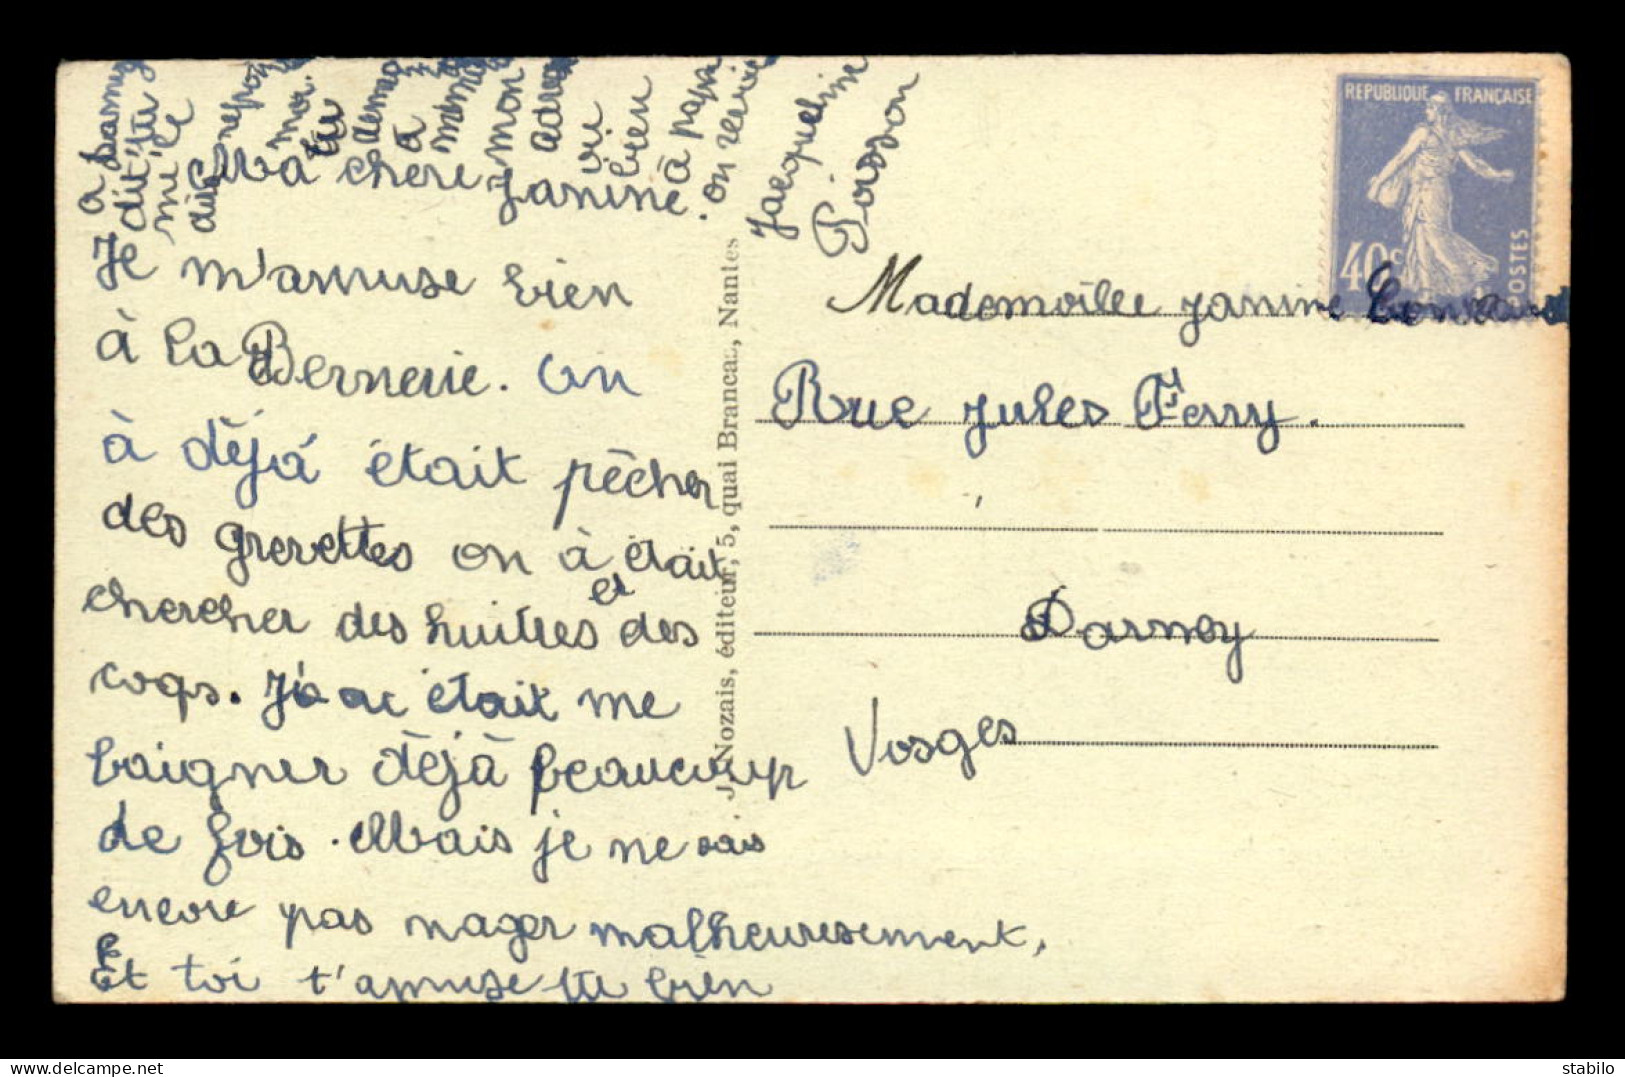 Ma chère Janine.
Je m'amuse bien
à la Bernerie. On
à déjá était pêcher
des grevettes on à était
chercher des huitres et des
coqs. J'a ai était me
baigner déjà beaucoup
de fois. Mais je ne sais
encore pas nager malheureusement,
Et toi t'amuse tu bien
a Darney
dit
mon
à
bien
à papa
Jacqueline
Poisson
J. Nozais, éditeur, 5, quai Brancas, Nantes
REPUBLIQUE FRANÇAISE
40c
POSTES
Mademoille Janine
Rue Jules Ferry.
Darney
Vosges
©delcampe.net
stabilo